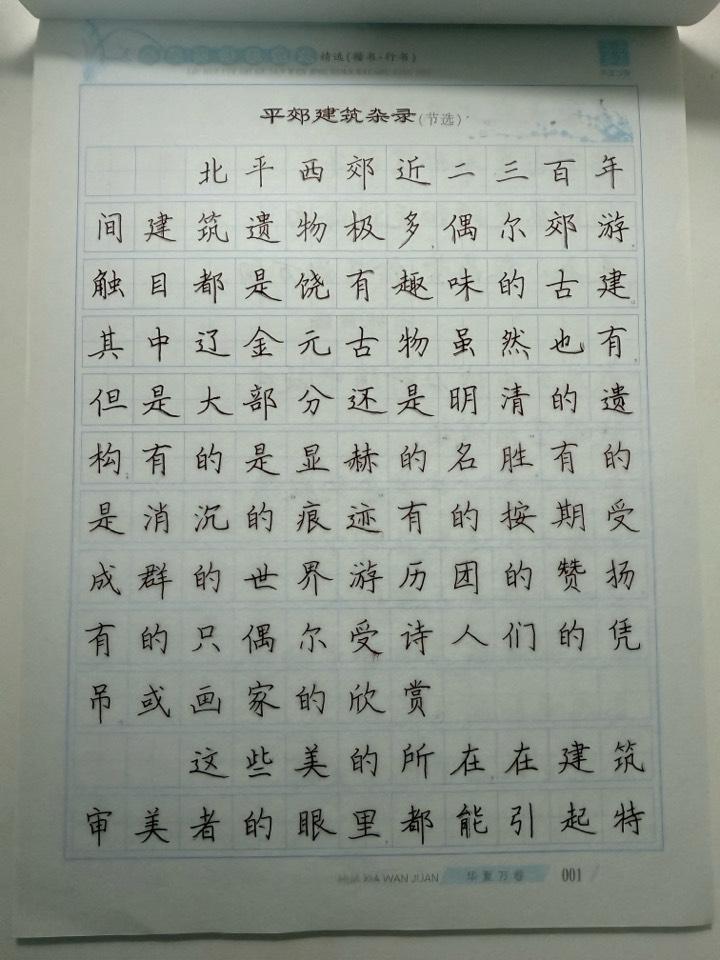 精选(楷书·行书)
平郊建筑杂录(节选)
北平西郊近二三百年
间建筑遗物极多,偶尔郊游
触目都是饶有趣味的古建
其中辽金元古物虽然也有
但是大部分还是明清的遗
构有的是显赫的“名胜”有的
是消沉的“痕迹”有的按期受
成群的世界游历团的赞扬
有的只偶尔受诗人们的凭
吊或画家的欣赏
这些美的所在在建筑
审美者的眼里都能引起特
HUA XIA WAN JUAN 华夏万卷 001